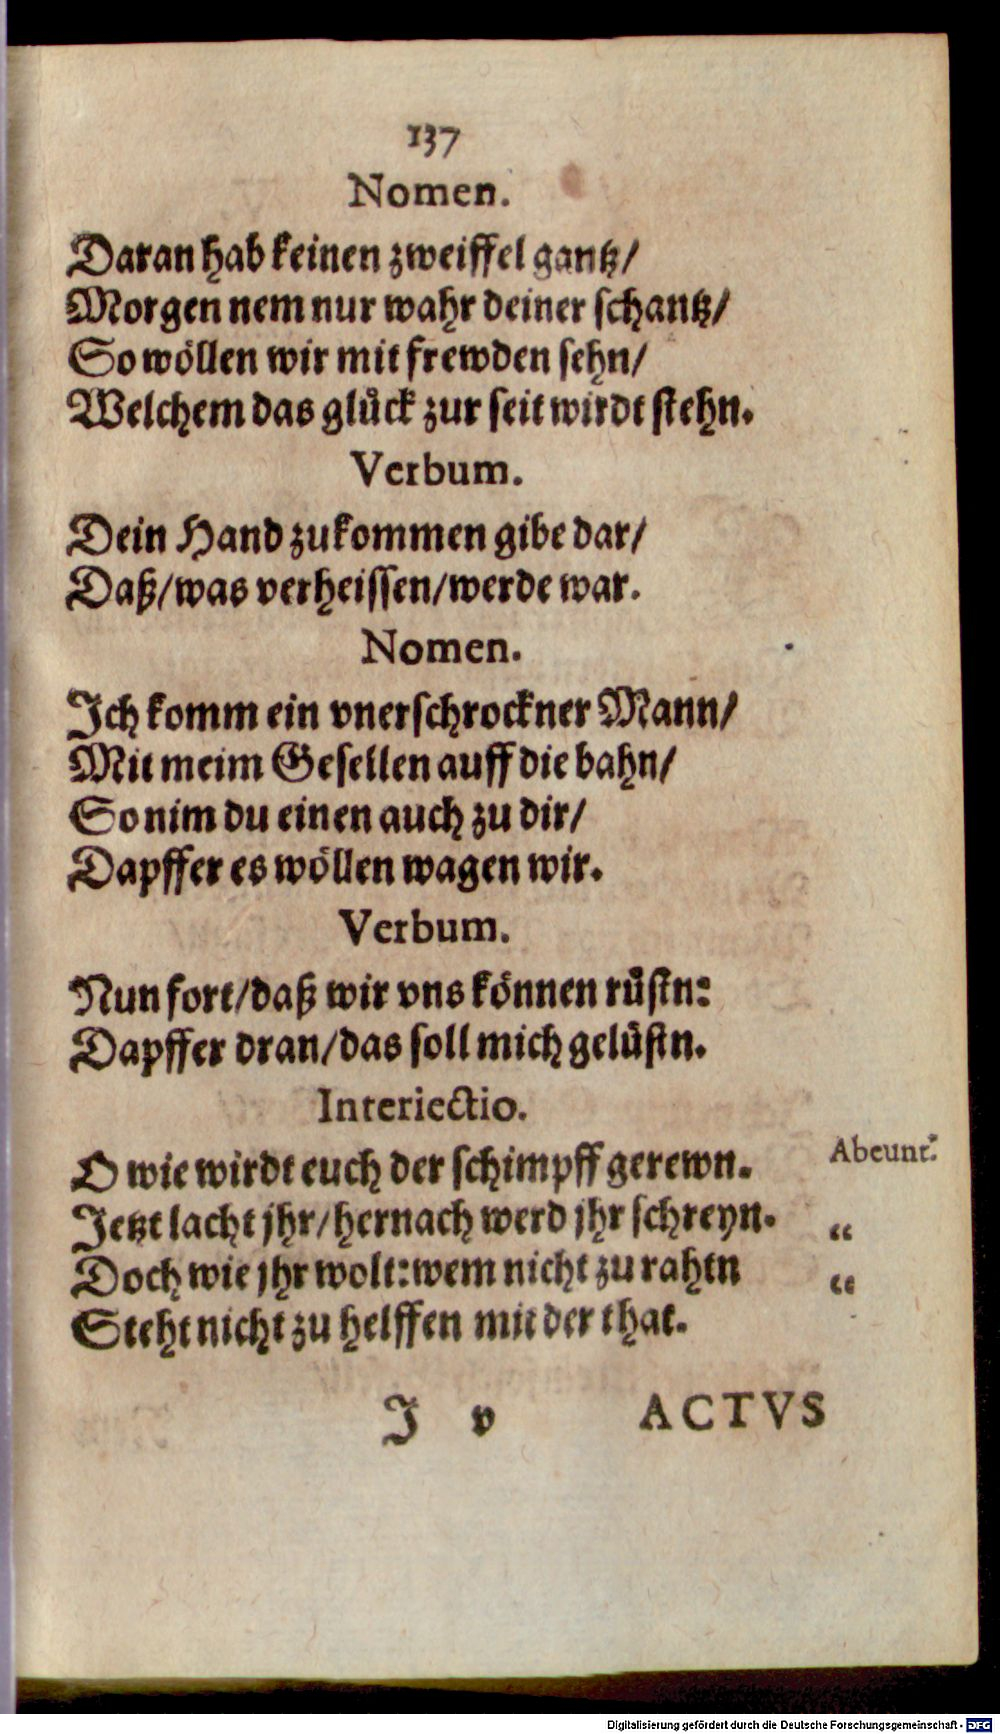 137
Nomen.
Daran hab keinen zweiffel gantz/
Morgen nem nur wahr deiner schantz/
So wöllen wir mit frewden sehn/
Welchem das glück zur seit wirdt stehn.
Verbum.
Dein Hand zukommen gibe dar/
Daß/was verheissen/werde war.
Nomen.
Ich komm ein vnerschrockner Mann/
Mit meim Gesellen auff die bahn/
So nim du einen auch zu dir/
Dapffer es wöllen wagen wir.
Verbum.
Nun fort/daß wir vns können rüstn:
Dapffer dran/das soll mich gelüstn.
Interiectio.
O wie wirdt euch der schimpff gerewn. Abeunt.
Jetzt lacht jhr/hernach werd jhr schreyn. “
Doch wie jhr wolt:wem nicht zu rahtn “
Steht nicht zu helffen mit der that.
J v ACTVS
Digitalisierung gefördert durch die Deutsche Forschungsgemeinschaft - DFG